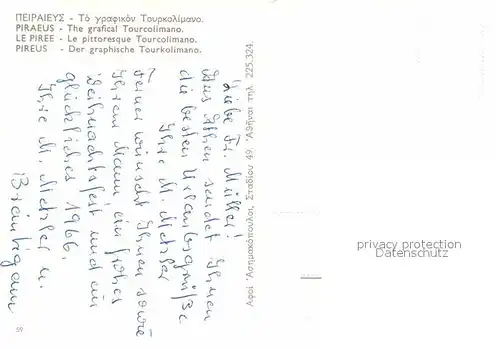 ΠΕΙΡΑΙΕΥΣ - Τὸ γραφικὸν Τουρκολίμανο.
PIRAEUS - The grafical Tourcolimano.
LE PIREE - Le pittoresque Tourcolimano.
PIREUS - Der graphische Tourkolimano.
Liebe Fr. Müller!
Aus Athen sendet Ihnen
die besten Urlaubsgrüße
Ihre M. Metzler
Ferner wünscht Ihnen sowie
Ihrem Mann ein frohes
Weihnachtsfest und ein
glückliches 1966.
Ihre M. Metzler u.
Bräutigam
Ἀφοὶ Ἀσημακόπουλοι, Σταδίου 49, Ἀθῆναι τηλ. 225.324.
59
privacy protection
Datenschutz